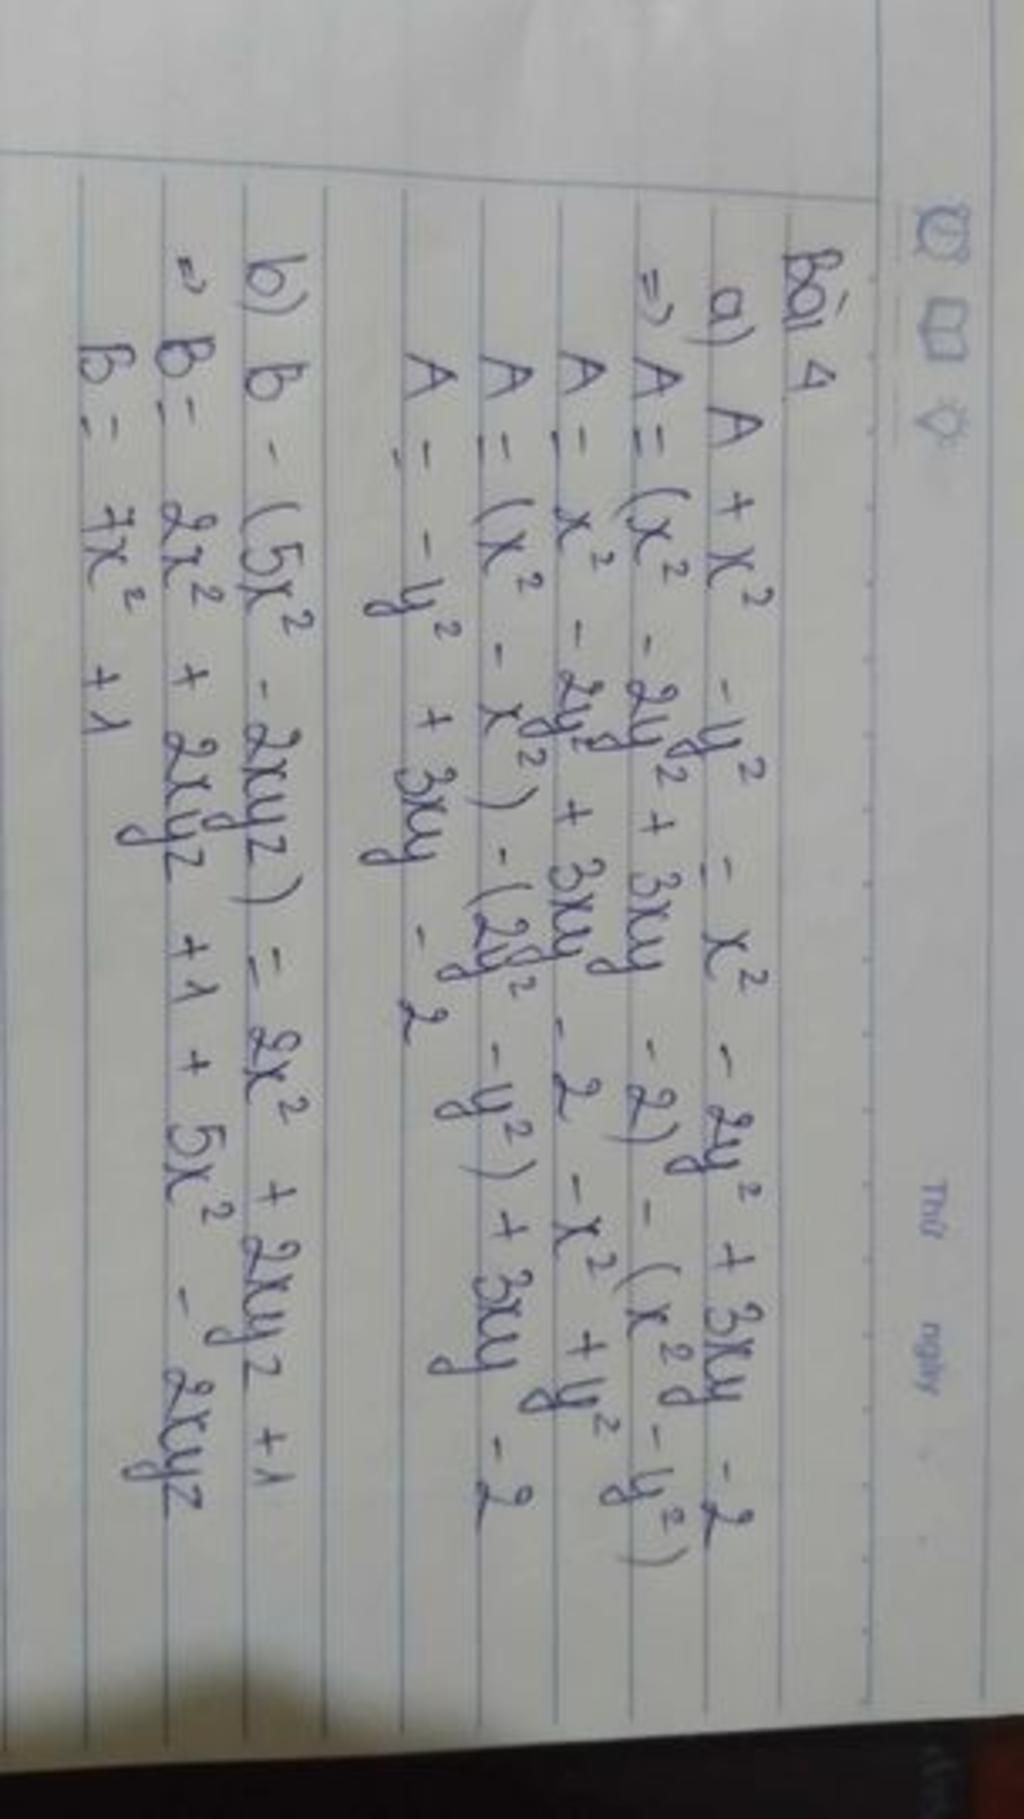 Thứ ngày
Bài 4
a) A + x² - y² = x² - 2y² + 3xy - 2
⇒ A = (x² - 2y² + 3xy - 2) - (x² - y²)
A = x² - 2y² + 3xy - 2 - x² + y²
A = (x² - x²) - (2y² - y²) + 3xy - 2
A = - y² + 3xy - 2
b) B - (5x² - 2xyz) = 2x² + 2xyz + 1
⇒ B = 2x² + 2xyz + 1 + 5x² - 2xyz
B = 7x² + 1